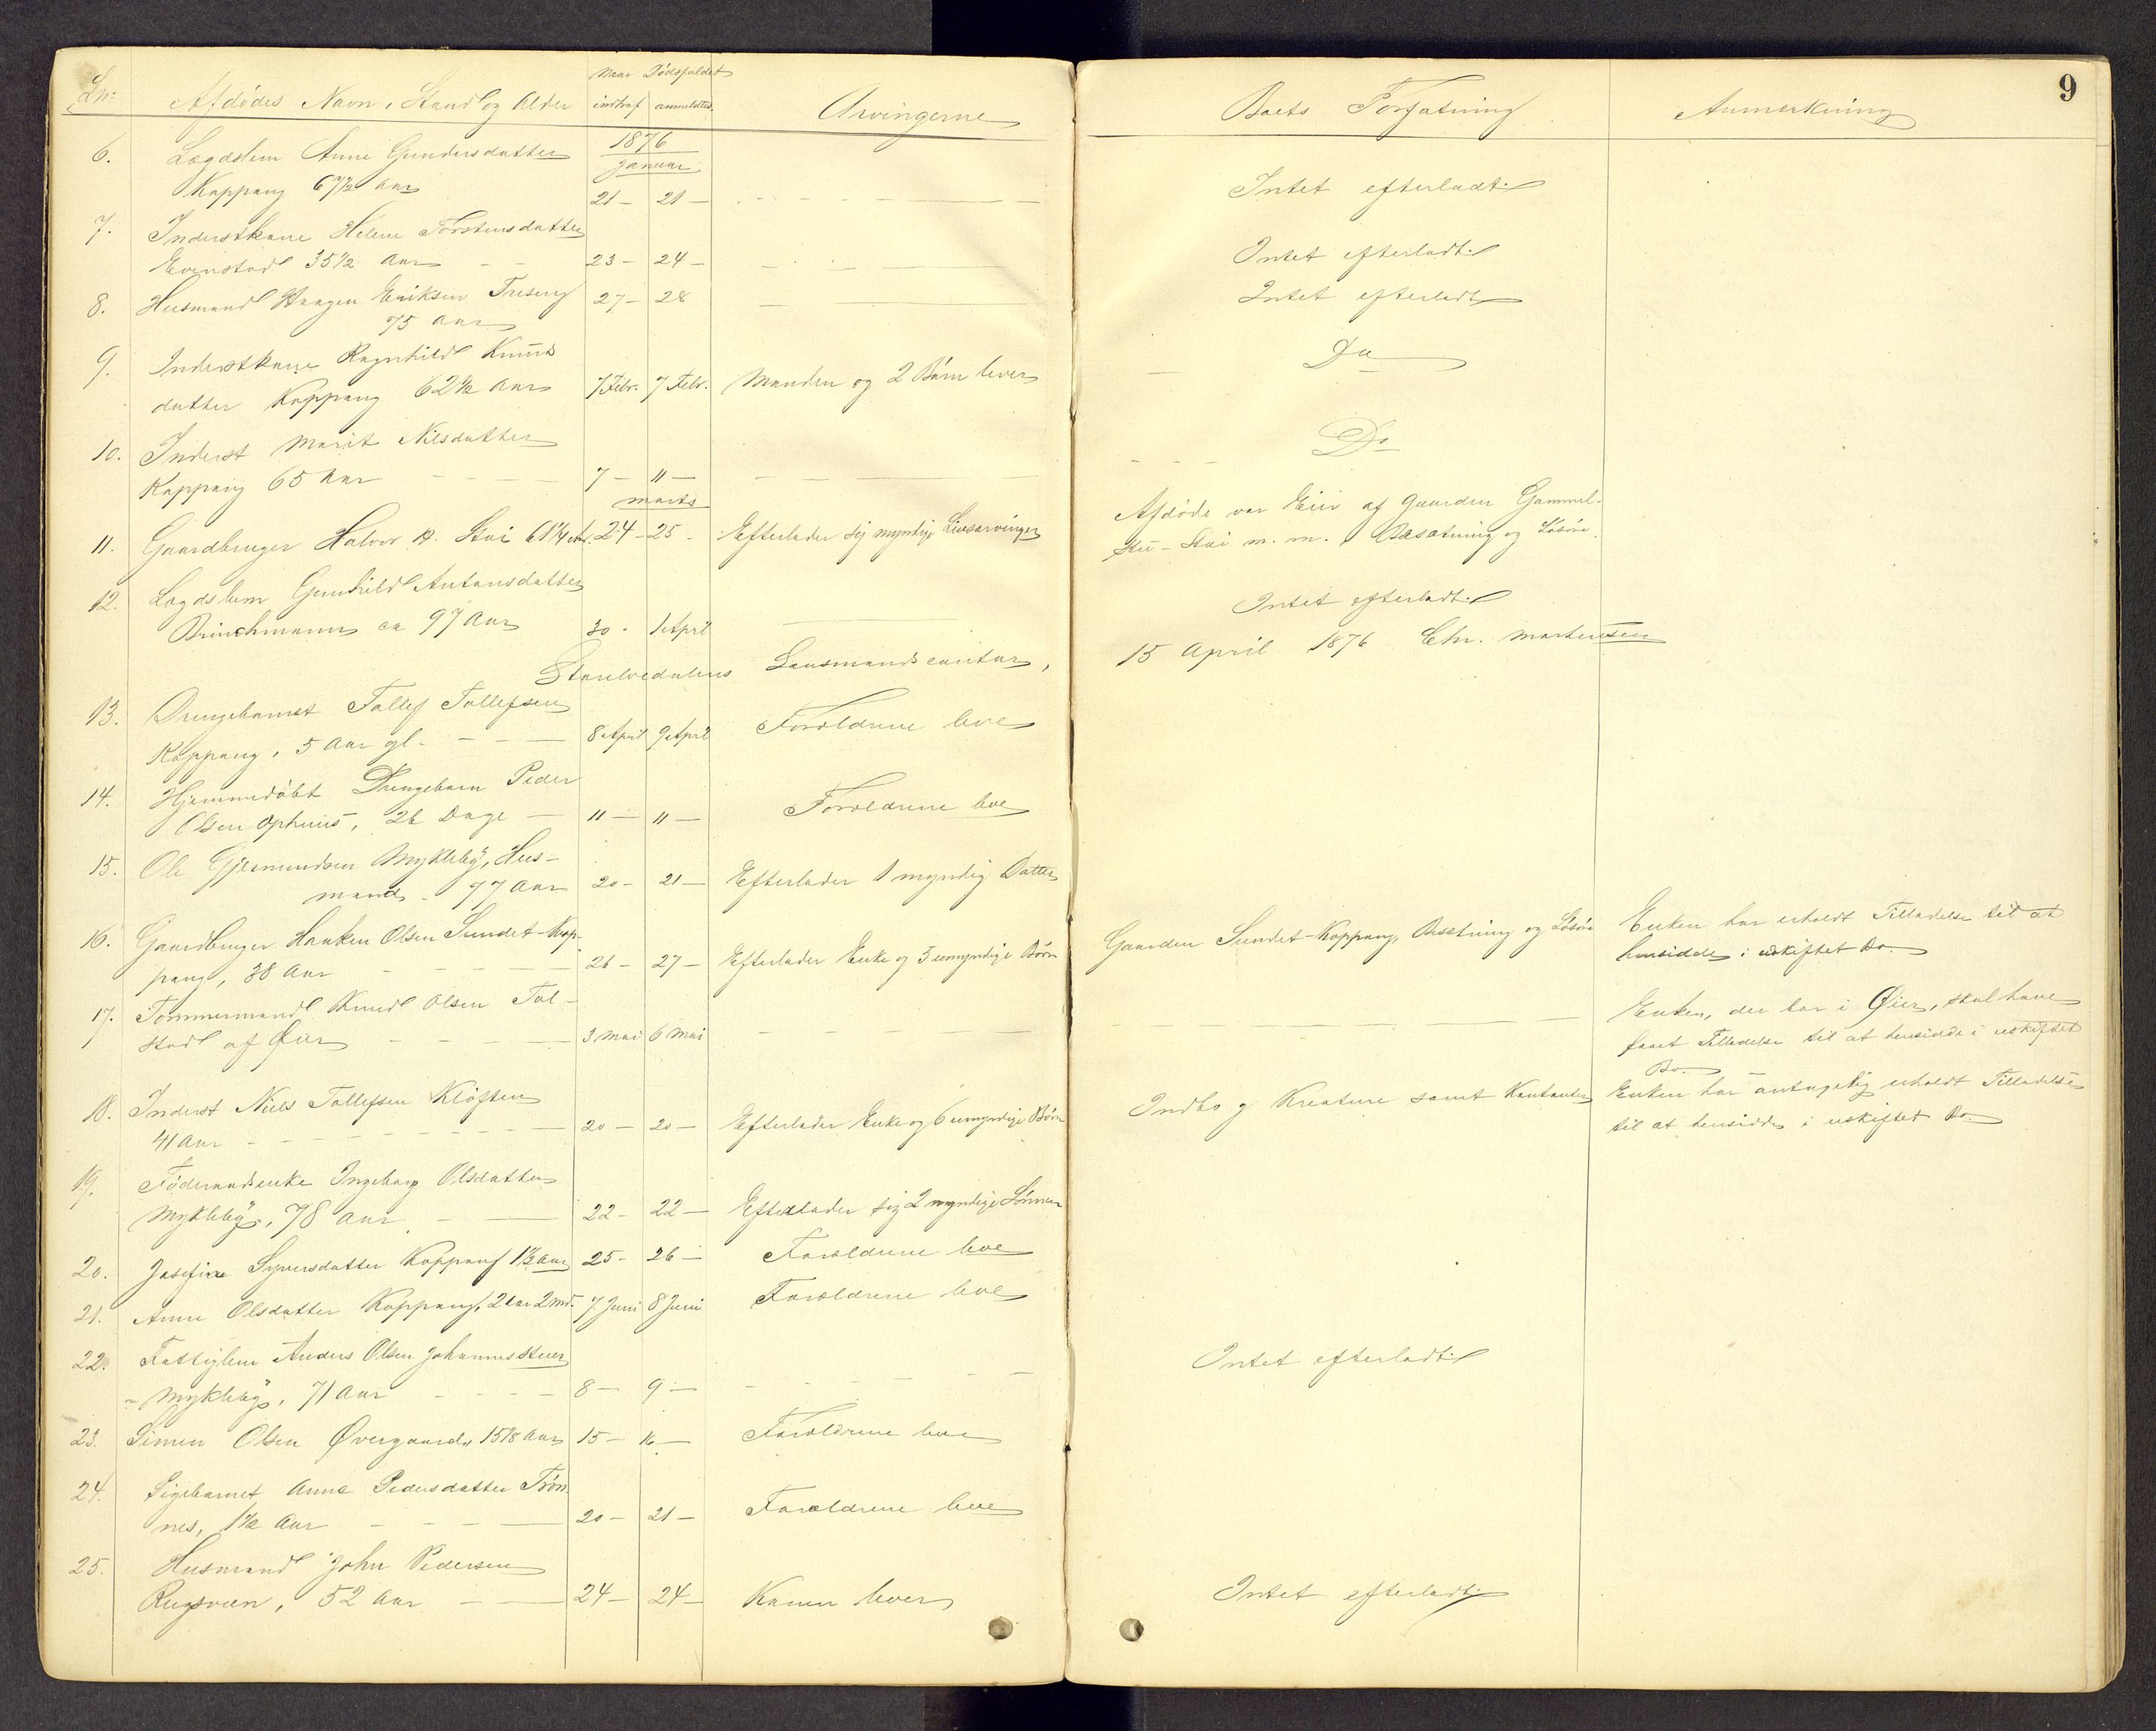 9
Lb:
Afdødes Navn, Stand og Alder
Naar Dødsfaldet
indtraf
anmeldtes
Arvingerne
Boets Forfatning
Anmerkning
1876
Januar
6. Lægdslem Anne Gundersdatter
Koppang 67½ Aar 21 – 21 – Intet efterladt
7. Inderstkone Helene Torstensdatter
Evenstad 35½ Aar 23 – 24 – Intet efterladt
8. Husmand Haagen Eriksen Treseng 27 – 28 Intet efterladt
75 Aar
9. Inderstkone Ragnhild Knuds Do
datter Koppang 62½ Aar 7 Febr. 7 Febr. Manden og 2 Børn lever
10. Inderst Marit Nilsdatter Do
Koppang 65 Aar 7 – 11 –
Marts
11. Gaardbruger Halvor H. Stai 61¼ Aar 24 – 25 – Efterlader sig myndige Livsarvinger Afdøde var Eier af Gaarden Gammel-
Stu-Stai m. m. Besætning og Løsøre.
12. Lægdslem Gunhild Antonsdatter Intet efterladt
Brinchmann ca 97 Aar 30 – 1 April
Storelvedalens Lensmandscontor, 15 April 1876 Chr. Mortensen
13. Drengebarnet Tollef Tollefsen
Koppang, 5 Aar gl. 8 April 9 April Forældrene leve
14. Hjemmedøbt Drengebarn Peder
Olsen Ophuus, 26 Dage 11 – 11 – Forældrene leve
15. Ole Gjermundsen Mykleby, Hus-
mand, 77 Aar 20 – 21 – Efterlader 1 myndig Datter
16. Gaardbruger Haaken Olsen Sundet-Kop-
pang, 38 Aar 26 – 27 – Efterlader Enke og 5 umyndige Børn Gaarden Sundet-Koppang, Besætning og Løsøre Enken har erholdt Tilladelse til at
hensidde i uskiftet Bo.
17. Tømmermand Knud Olsen Tol-
stad af Øier 3 Mai 6 Mai Enken, der bor i Øier, skal have
faaet Tilladelse til at hensidde i uskiftet
Bo.
18. Inderst Niels Tollefsen Kløften
41 Aar 20 – 20 – Efterlader Enke og 6 umyndige Børn Indbo og Kreature samt Kontanter Enken har antagelig erholdt Tilladelse
til at hensidde i uskiftet Bo.
19. Føderaadsenke Ingeborg Olsdatter
Mykleby, 78 Aar 22 – 22 – Efterlader sig 2 myndige Sønner
20. Josefine Syversdatter Koppang 1½ Aar 25 – 26 – Forældrene leve
21. Anne Olsdatter Koppang, 2 Aar 2 Md. 7 Juni 8 Juni Forældrene leve
22. Fattiglem Anders Olsen Johannesstuen
– Mykleby, 71 Aar 8 – 9 – Intet efterladt
23. Simen Olsen Øvergaard 15⅛ Aar 15 – 16 – Forældrene leve
24. Pigebarnet Anne Pedersdatter Trøn-
nes, 1½ Aar 20 – 21 – Forældrene leve
25. Husmand John Pedersen
Rugsveen, 52 Aar 24 – 24 – Konen lever Intet efterladt